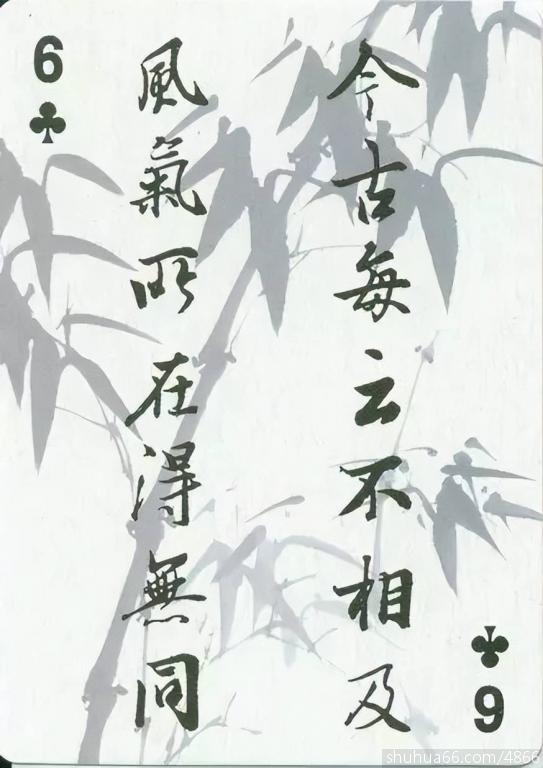 6
今古每云不相及
風氣所在得無同
6
shuhua66.com/4866